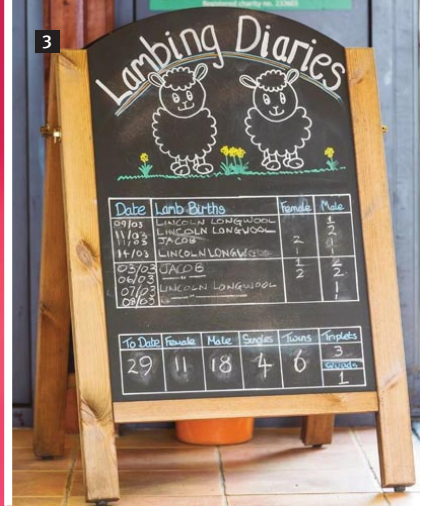 Registered charity no. 213603
3
Lambing Diaries
Date Lamb Births Female Male
09/03 LINCOLN LONGWOOL 1
11/03 LINCOLN LONGWOOL 2
11/03 JACOB 2
14/03 LINCOLN LONGWOOL
03/03 JACOB 1 2
06/03 2 2
07/03 LINCOLN LONGWOOL 1
08/03 1
To Date Female Male Singles Twins Triplets
29 11 18 4 6 3
Quads
1